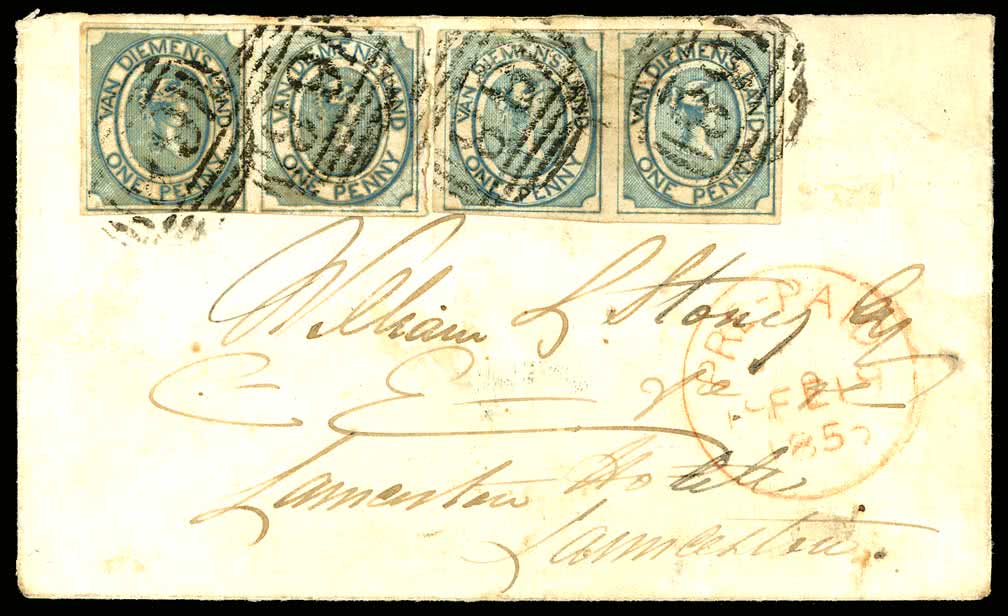 VAN DIEMEN'S LAND ONE PENNY
VAN DIEMEN'S LAND ONE PENNY
VAN DIEMEN'S LAND ONE PENNY
VAN DIEMEN'S LAND ONE PENNY
William L Stoney
C E
Launceston Hotel
Launceston.
PRE-PAID
185